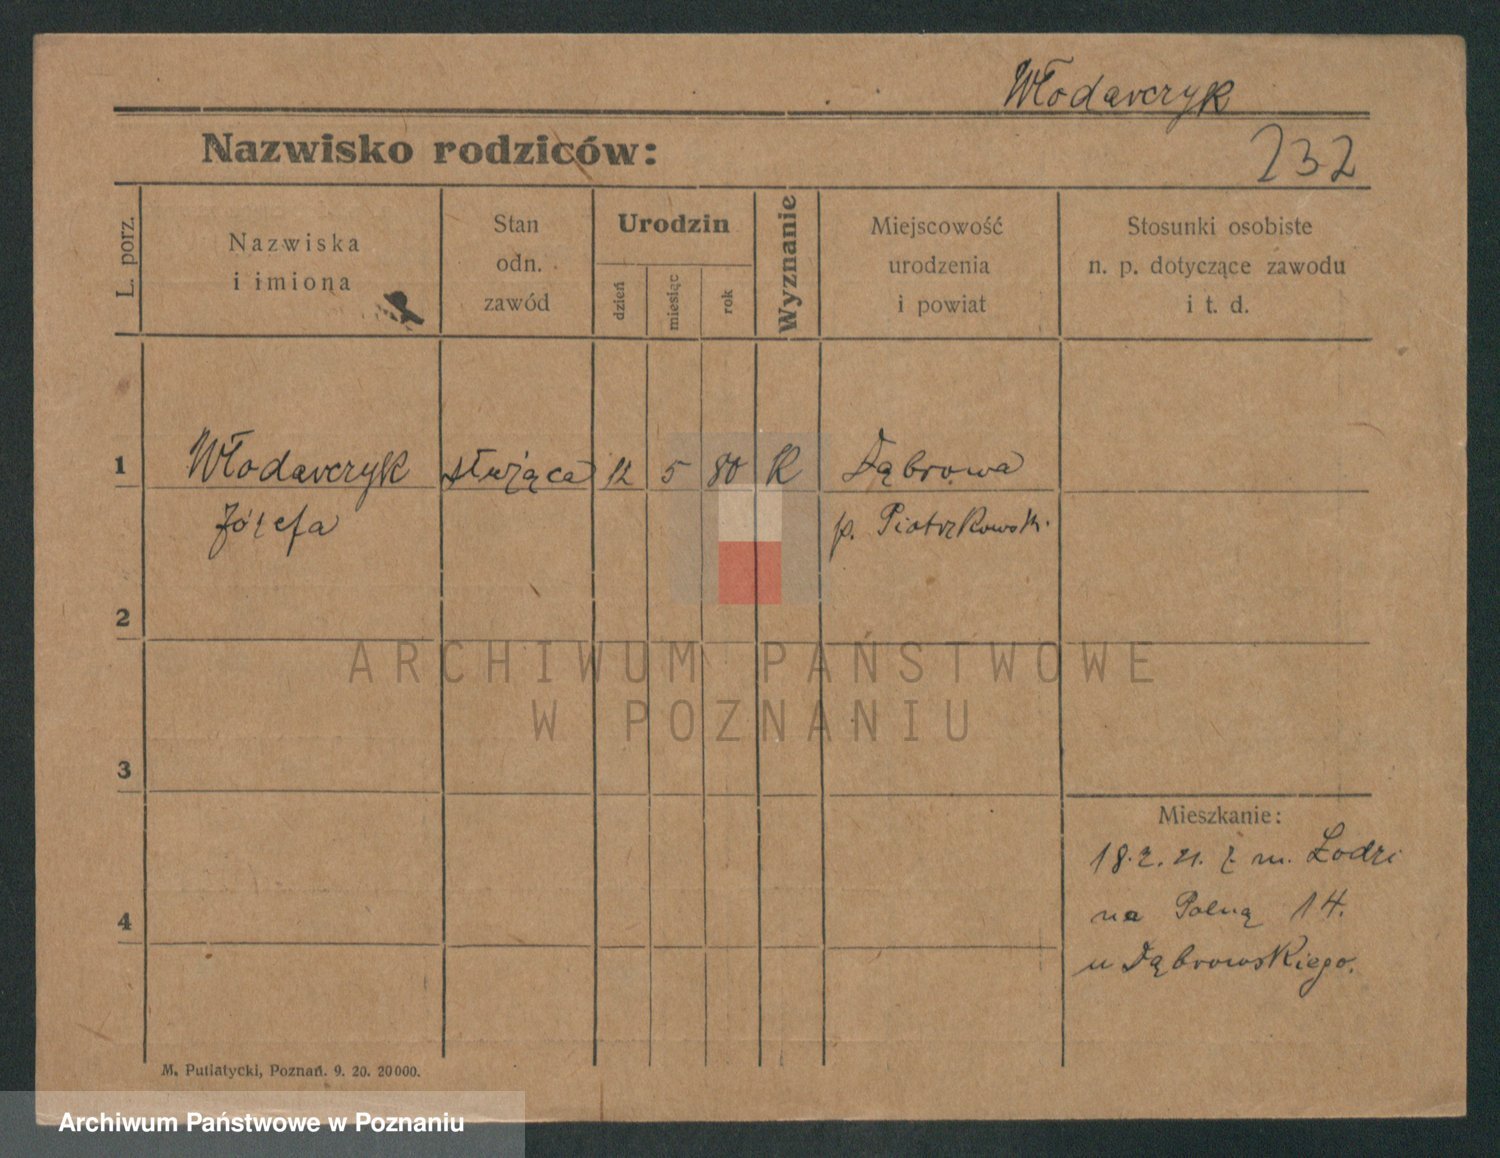 Włodarczyk
Nazwisko rodziców:
232
L. porz.
Nazwiska
i imiona
Stan
odn.
zawód
Urodzin
dzień
miesiąc
rok
Wyznanie
Miejscowość
urodzenia
i powiat
Stosunki osobiste
n. p. dotyczące zawodu
i t. d.
1
Włodarczyk służąca 12 5 80 K Dąbrowa
Józefa p. Piotrkowsk.
2
ARCHIWUM PAŃSTWOWE
W POZNANIU
3
Mieszkanie:
18.2.21. z m. Łodzi
4
na Polną 14.
u Dąbrowskiego.
M. Putiatycki, Poznań. 9. 20. 20000.
Archiwum Państwowe w Poznaniu